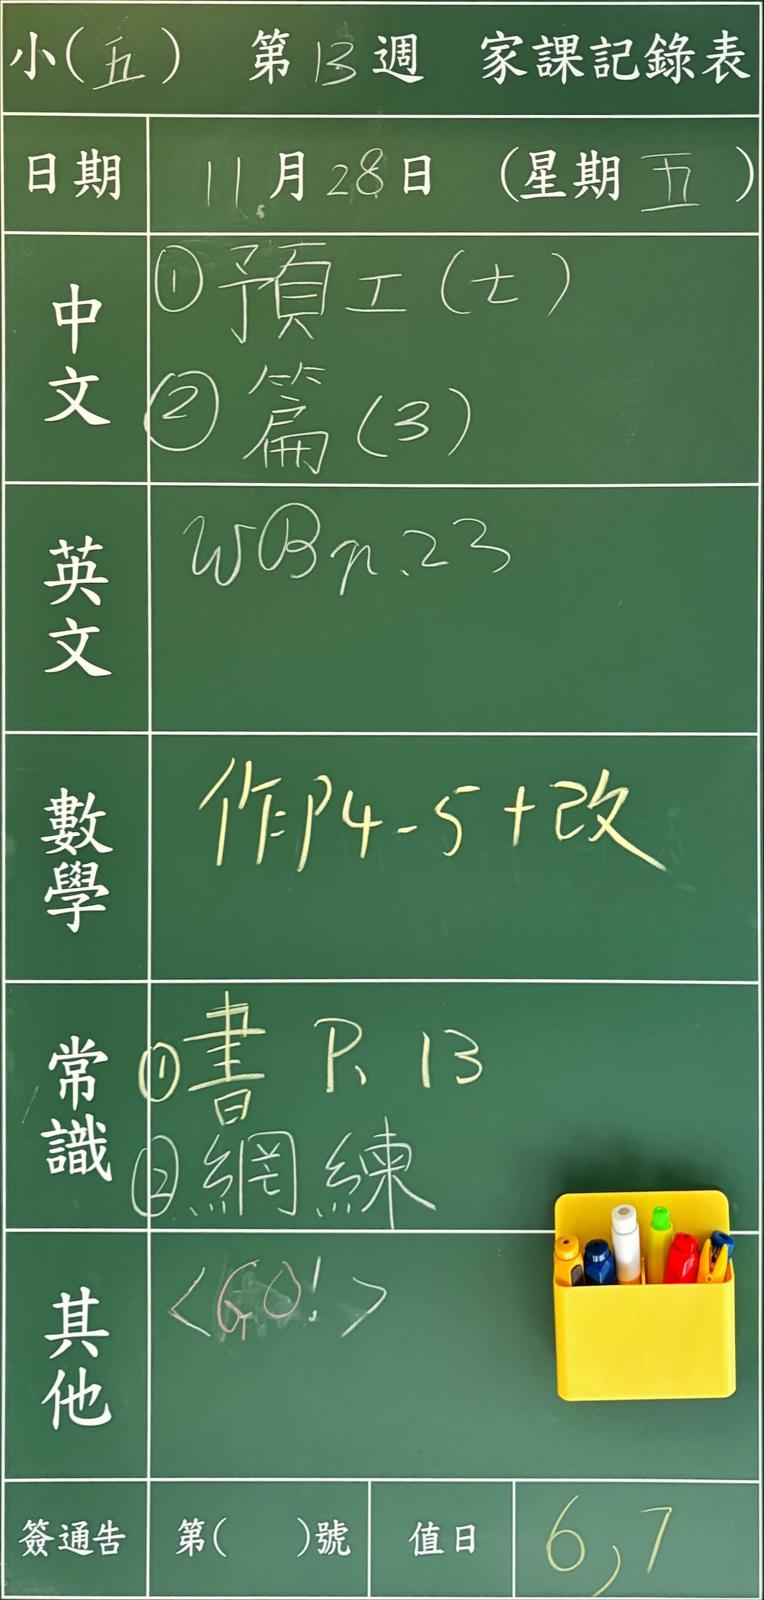 小(五) 第13週 家課記錄表
日期 11月28日 (星期五)
中文
①預工(士)
②篇(3)
英文
WB p.23
數學
作P4-5+改
常識
①書 P. 13
②網練
其他
<GO!>
簽通告 第( )號 值日 6,7